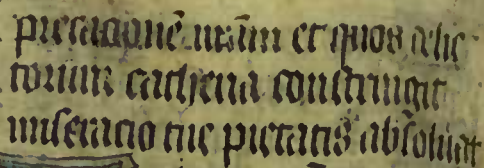 precacionē nrām et quos delic
torum cathena constringit
miseracio tue pietatis absoluat